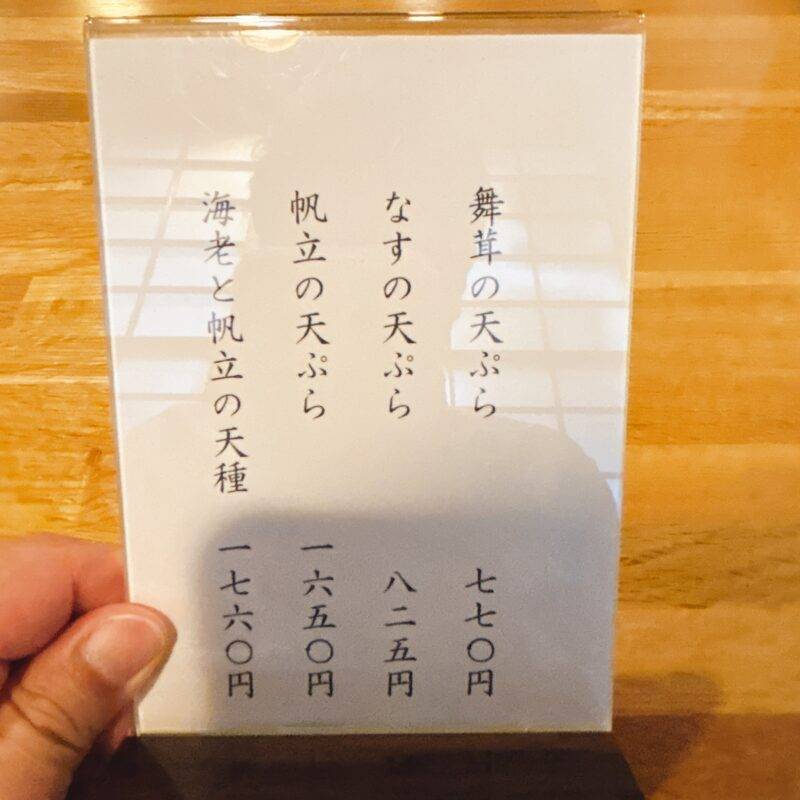 舞茸の天ぷら 七七〇円
なすの天ぷら 八二五円
帆立の天ぷら 一六五〇円
海老と帆立の天種 一七六〇円